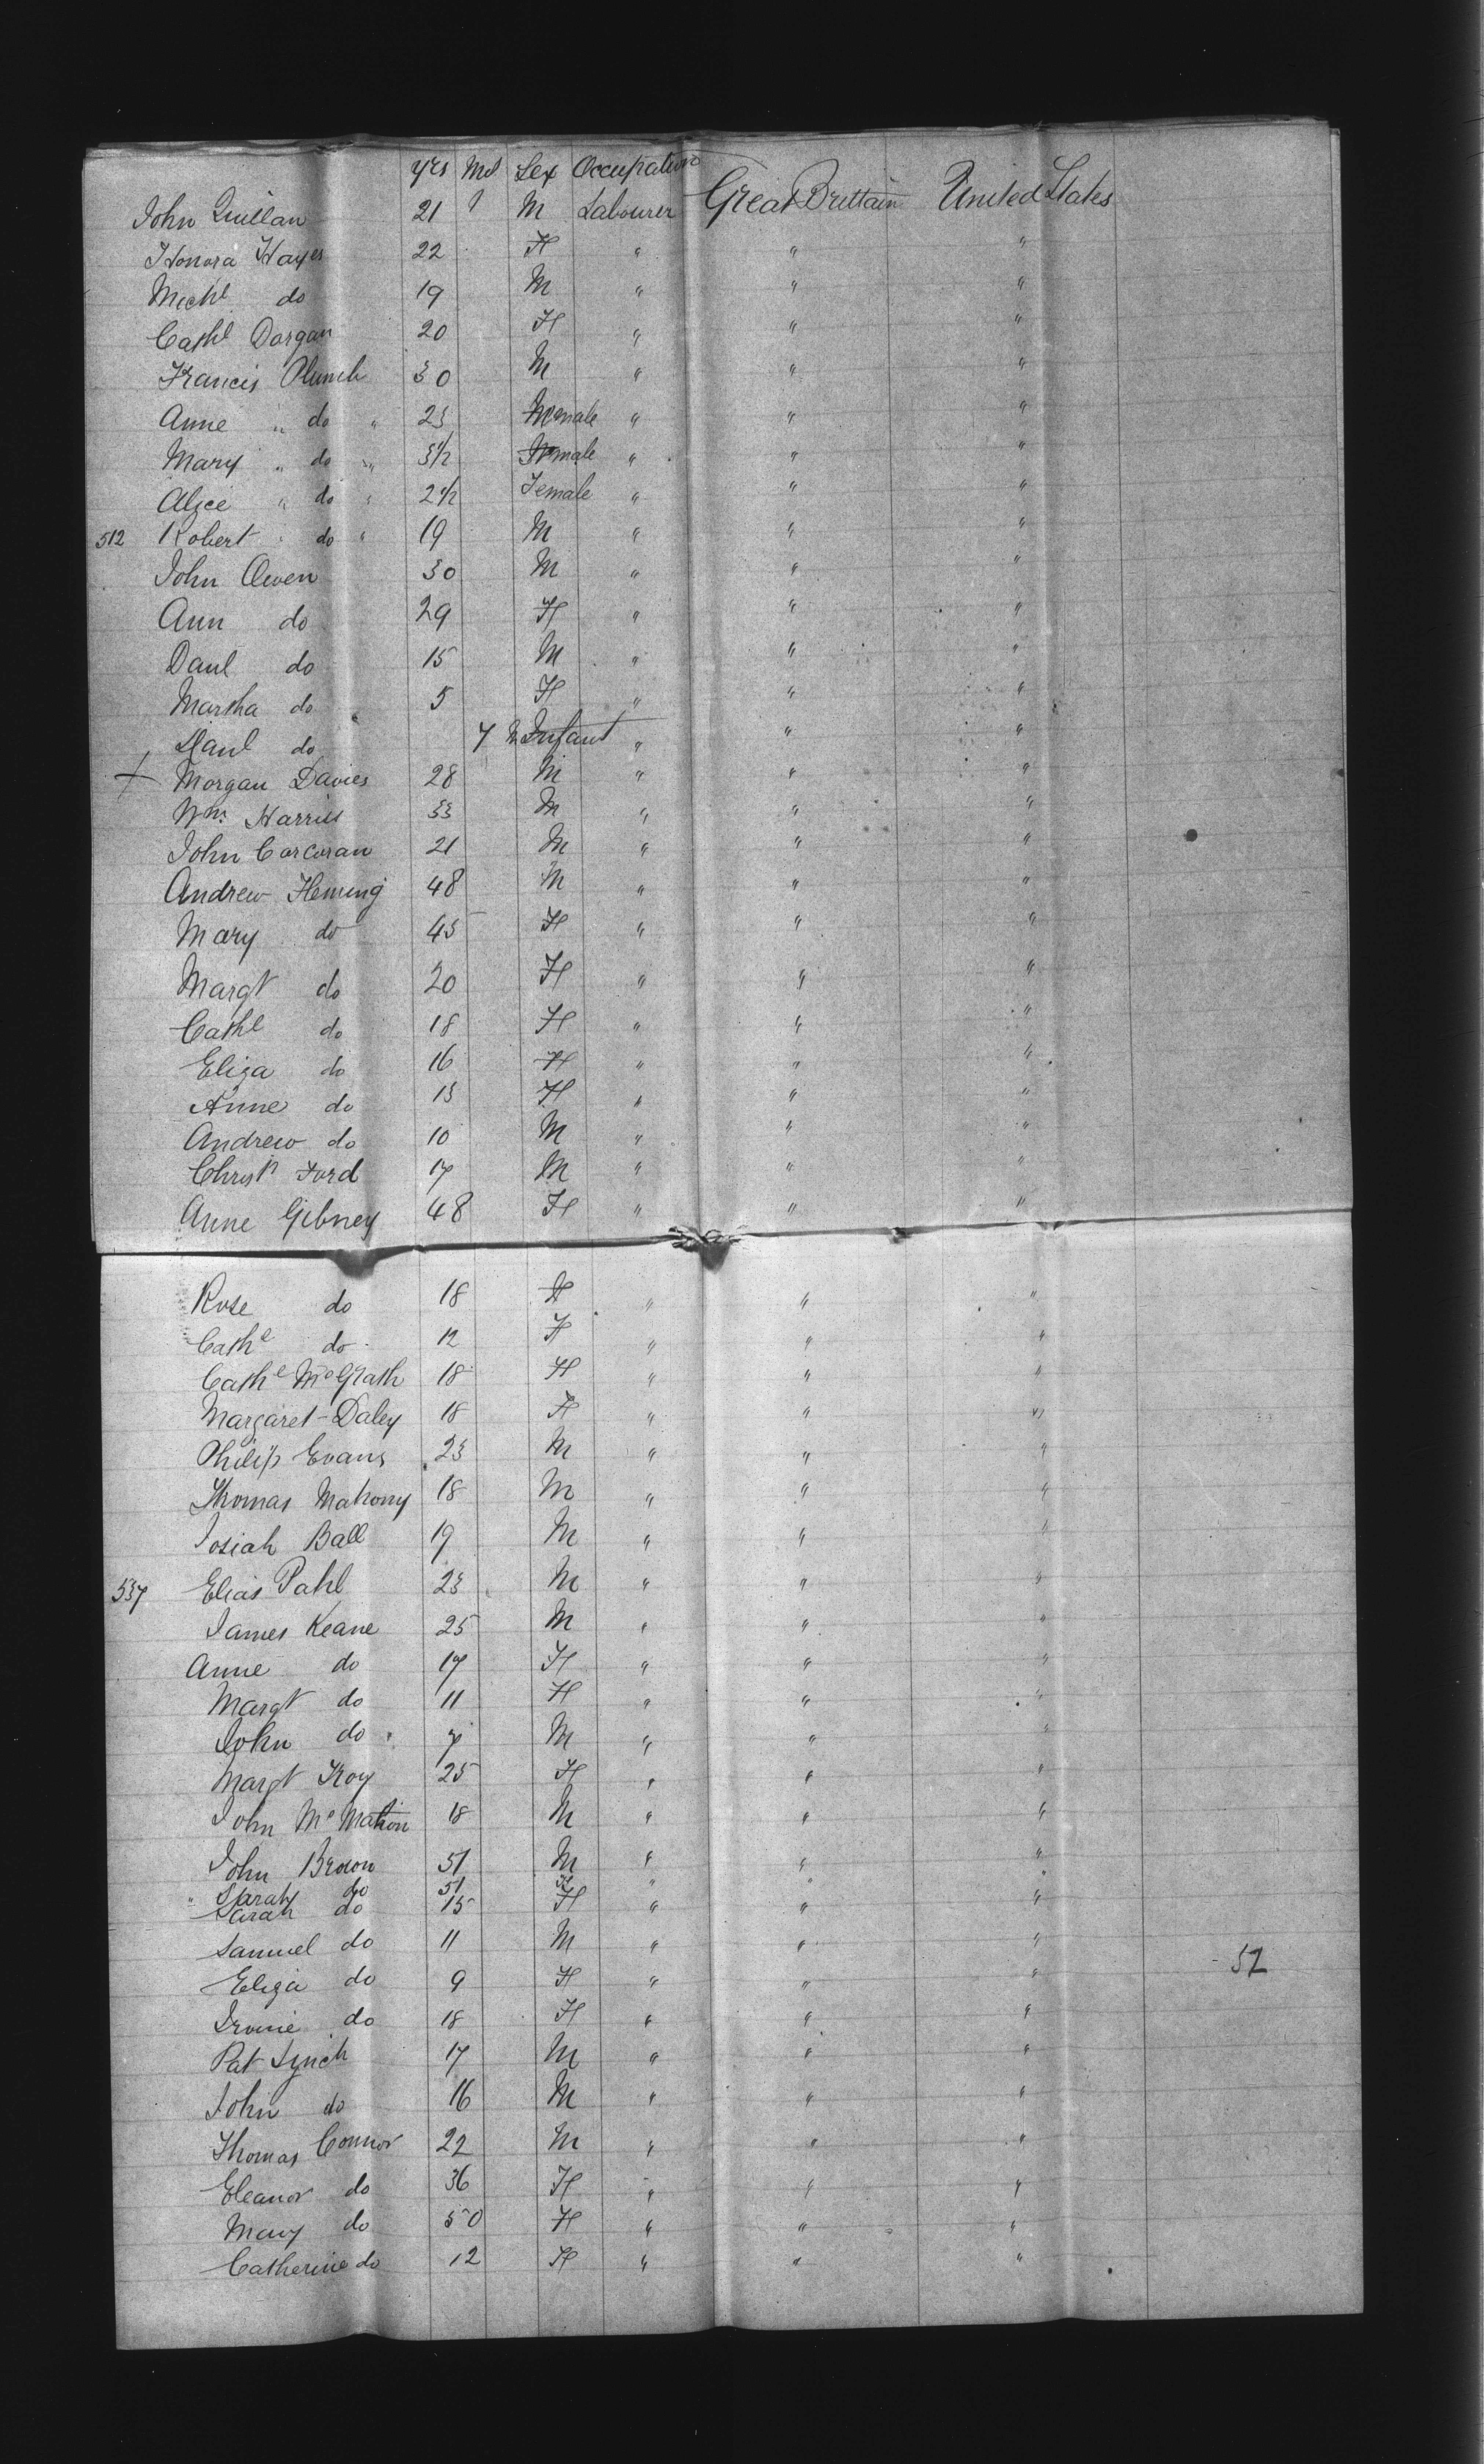 yrs Ms Sex Occupation
John Quillan 21 M Labourer Great Brittain United States
Honora Hayes 22 F " " "
Michl do 19 M " " "
Cathe Dargan 20 F " " "
Francis Plunch 30 M " " "
Anne " do " 23 Female " " "
Mary " do " 3½ Female " " "
Alice " do " 2½ Female " " "
512 Robert " do " 19 M " " "
John Owen 30 M " " "
Ann do 29 F " " "
Danl do 15 M " " "
Martha do 5 F " " "
Danl do 7 M Infant " " "
+ Morgan Davies 28 M " " "
Wm. Harries 33 M " " "
John Corcoran 21 M " " "
Andrew Fleming 48 M " " "
Mary do 45 F " " "
Margt do 20 F " " "
Cathe do 18 F " " "
Eliza do 16 F " " "
Anne do 13 F " " "
Andrew do 10 M " " "
Christr Ford 17 M " " "
Anne Gibney 48 F " " "
Rose do 18 F " " "
Cathe do 12 F " " "
Cathe McGrath 18 F " " "
Margaret Daley 18 F " " "
Philip Evans 23 M " " "
Thomas Mahony 18 M " " "
Josiah Ball 19 M " " "
537 Elias Pahl 23 M " " "
James Keane 25 M " " "
Anne do 17 F " " "
Margt do 11 F " " "
John do 7 M " " "
Margt Troy 25 F " " "
John McMahon 18 M " " "
John Brown 51 M " " "
" Sarah do 51 F " " "
Sarah do 15 F " " "
Samuel do 11 M " " "
Eliza do 9 F " " " 52
Irvine do 18 F " " "
Pat Lynch 17 M " " "
John do 16 M " " "
Thomas Connor 22 M " " "
Eleanor do 36 F " " "
Mary do 50 F " " "
Catherine do 12 F " " "